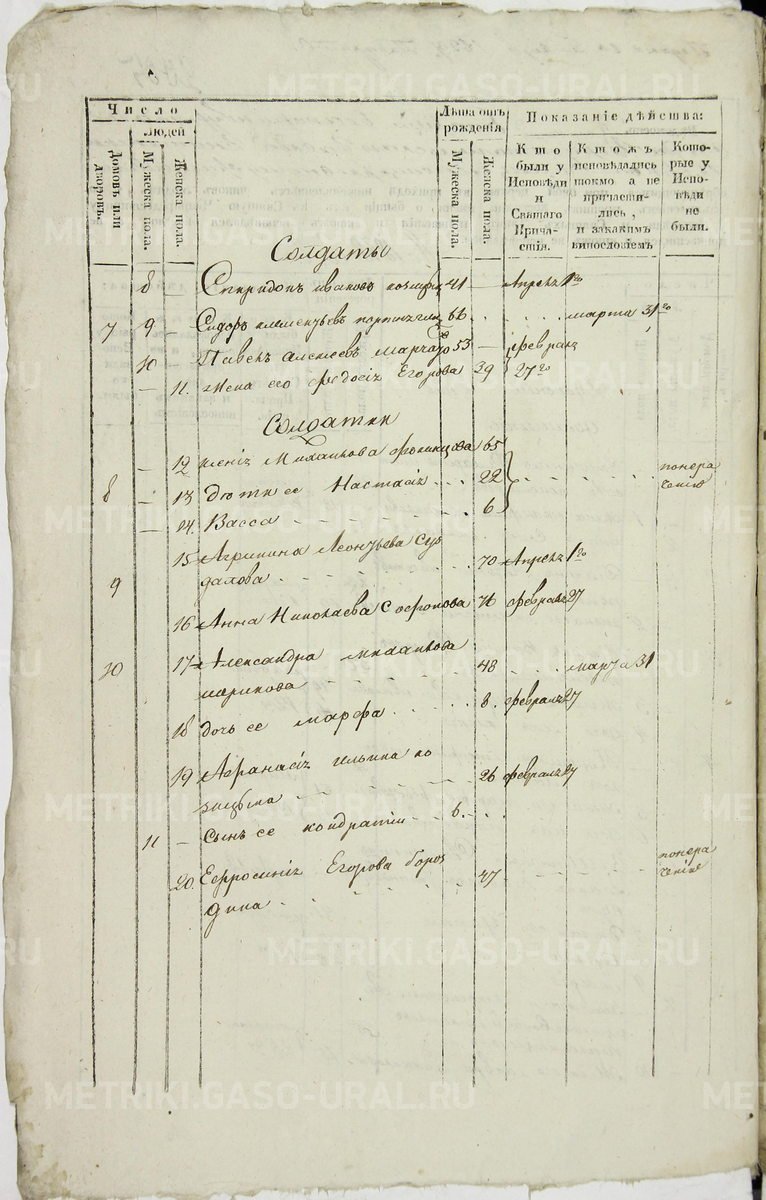 METRIKI.GASO-URAL.RU
Число
Людей
Домовъ или дворовъ.
Мужеска пола.
Женска пола.
Лѣта отъ рождения
Мужеска пола.
Женска пола.
Показаніе дѣйства:
Кто были у Исповѣди и Святаго Причастія.
Ктожъ исповѣдались токмо а не причастились, и закакимъ винословіемъ
Которые у Исповѣди не были.
Солдаты
8 — Спиридонъ Ивановъ 41 — Апреля 1го
7 9 — Сидоръ Клементьевъ 66 марта 31го
10 — Павелъ Алексеевъ 53 — февраля
— 11. Жена его Федосія Егорова 39 27го
Солдатки
— 12 Михаилова 65
8 — 13 Дѣти ее Настасія 22 понера
чению
— 14. Васса 6
15 Агрипина Леонтьева Суз
9 далова 70 Апреля 1го
16 Анна Николаева Софронова 71 февраля 27
10 17 Александра Михаилова
48 марта 31
18 дочь ее марфа 8. февраля 27
19 Афанасія Ильина ко
26 февраля 27
11 — Сынъ ее Кондратіи 6.
20. Ефросинія Егорова Бороз
дина 47 понера
чению
METRIKI.GASO-URAL.RU